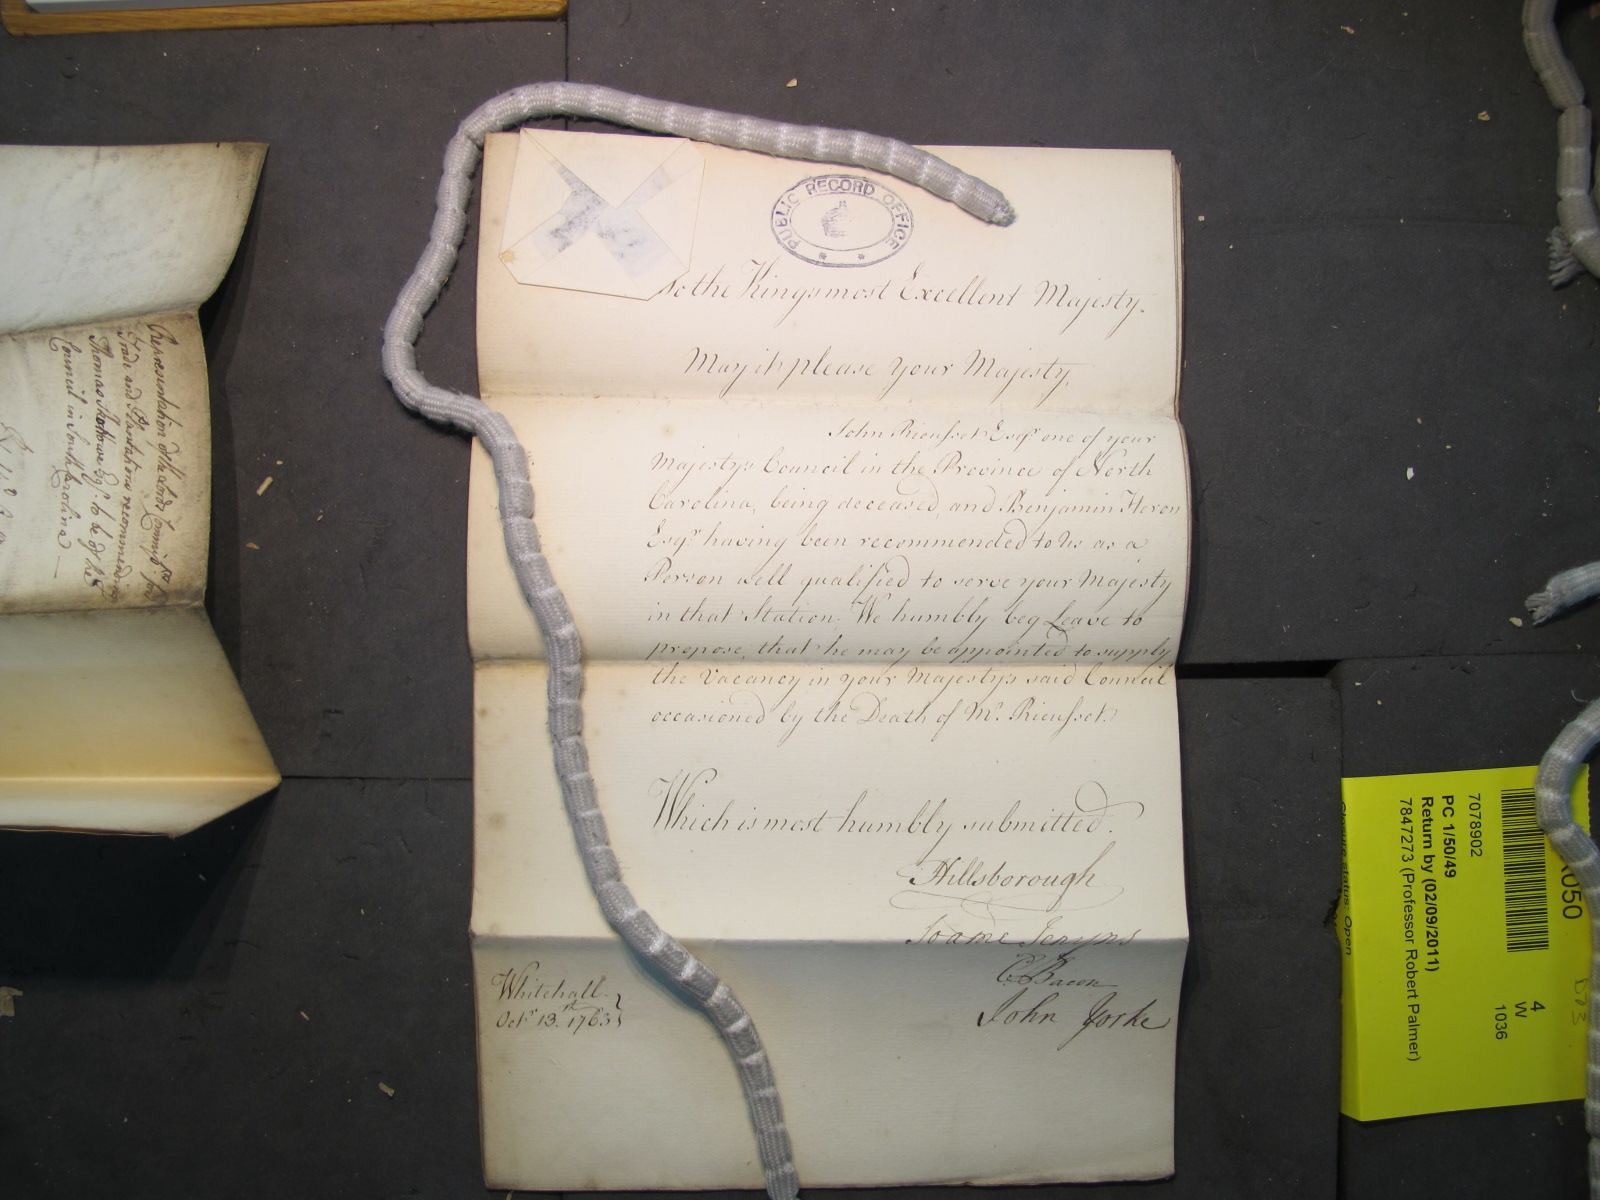 PUBLIC RECORD OFFICE
To the Kings most Excellent Majesty.
May it please Your Majesty,
John Rieusset Esqr. one of your
Majesty's Council in the Province of North
Carolina, being deceased, and Benjamin Heron
Esqr. having been recommended to Us as a
Person well qualified to serve your Majesty
in that Station; We humbly beg Leave to
propose, that he may be appointed to supply
the Vacancy in your Majesty's said Council
occasioned by the Death of Mr. Rieusset.
Which is most humbly submitted.
Hillsborough
Soame Jenyns
E Bacon
John Yorke
Whitehall
Octr. 13th. 1763
Representation of the Lords Commissrs. for
Trade and Plantations recommending
Thomas Skottowe Esqr. to be of the
Council in South Carolina
050
4
W
1036
7078902
PC 1/50/49
Return by (02/09/2011)
7847273 (Professor Robert Palmer)
Closure status: Open